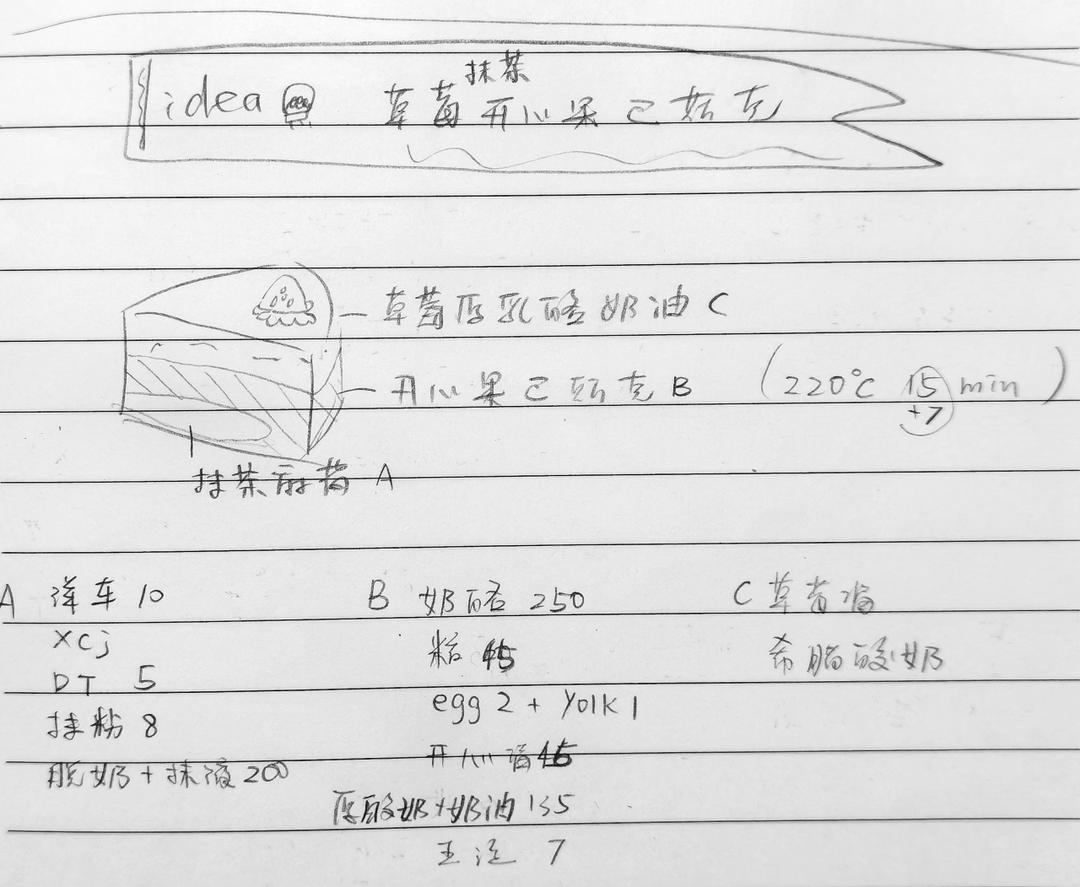 idea 抹茶
草莓开心果巴斯克
草莓厚乳酪奶油 C
开心果巴斯克 B (220°C 15 min)
+7
抹茶麻薯 A
A 洋车 10
xcj
DT 5
抹粉 8
脱奶+抹液 200
B 奶酪 250
糖 45
egg 2 + yolk 1
开心酱 45
厚酸奶+奶油 135
玉淀 7
C 草莓酱
希腊酸奶